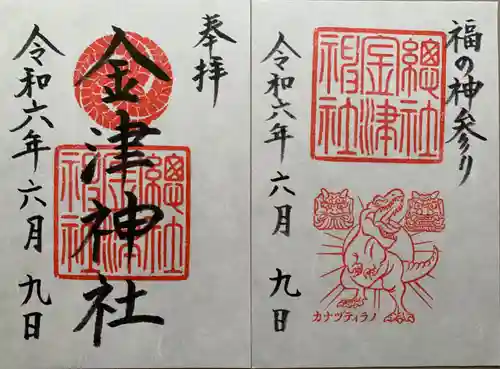 奉拝
金津神社
總社
金津
神社
令和六年六月九日
福の神参り
總社
金津
神社
令和六年 六月 九日
カナヅティラノ